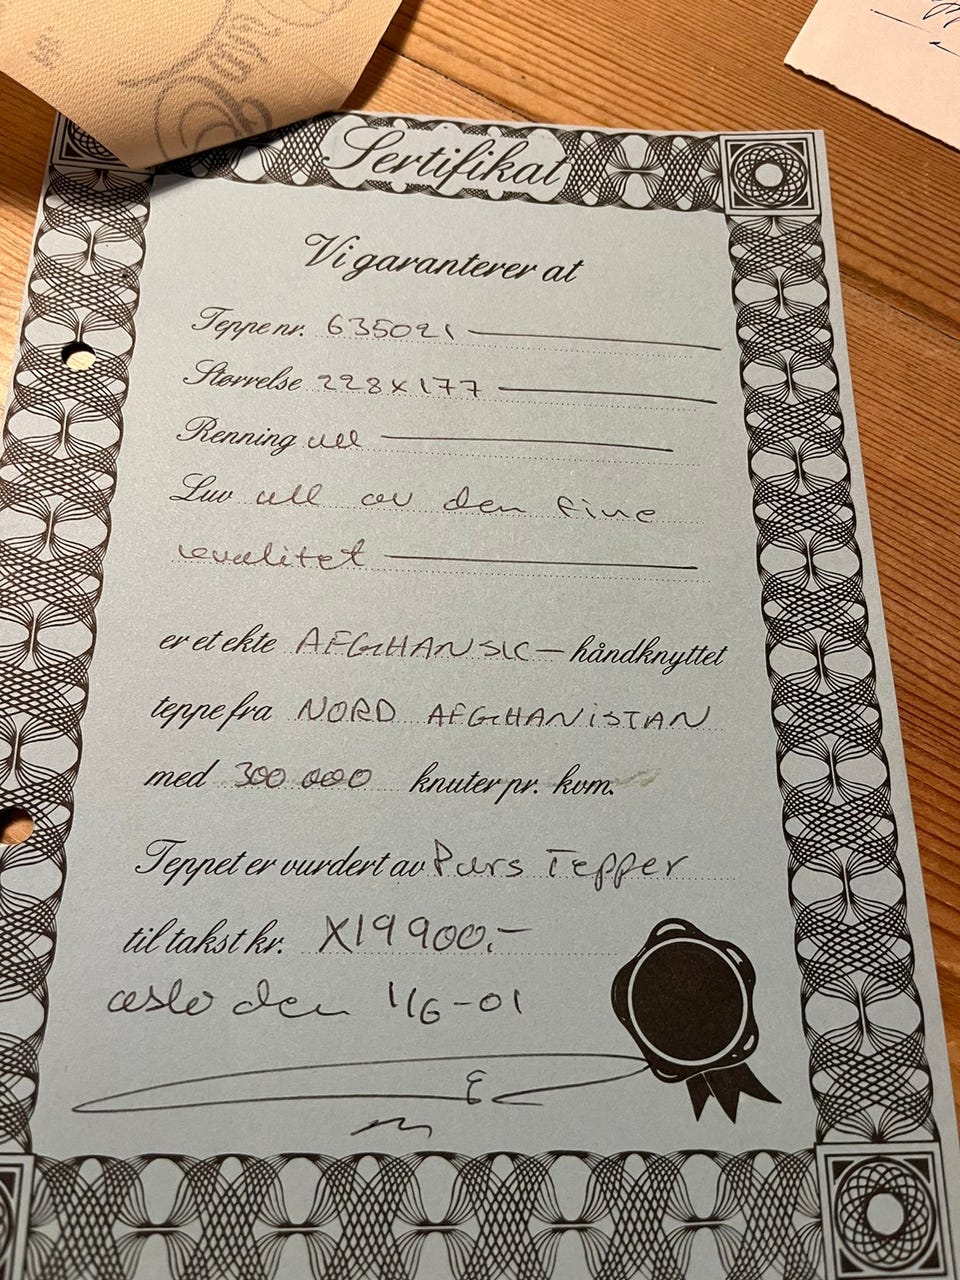 Sertifikat
Vi garanterer at
Teppe nr. 635021
Størrelse 228x177
Renning ull
Luv ull av den fine
kvalitet
er et ekte AFGHANSK - håndknyttet
teppe fra NORD AFGHANISTAN
med 300 000 knuter pr. kvm.
Teppet er vurdert av Pars Tepper
til takst kr. X19900,-
oslo den 1/6-01